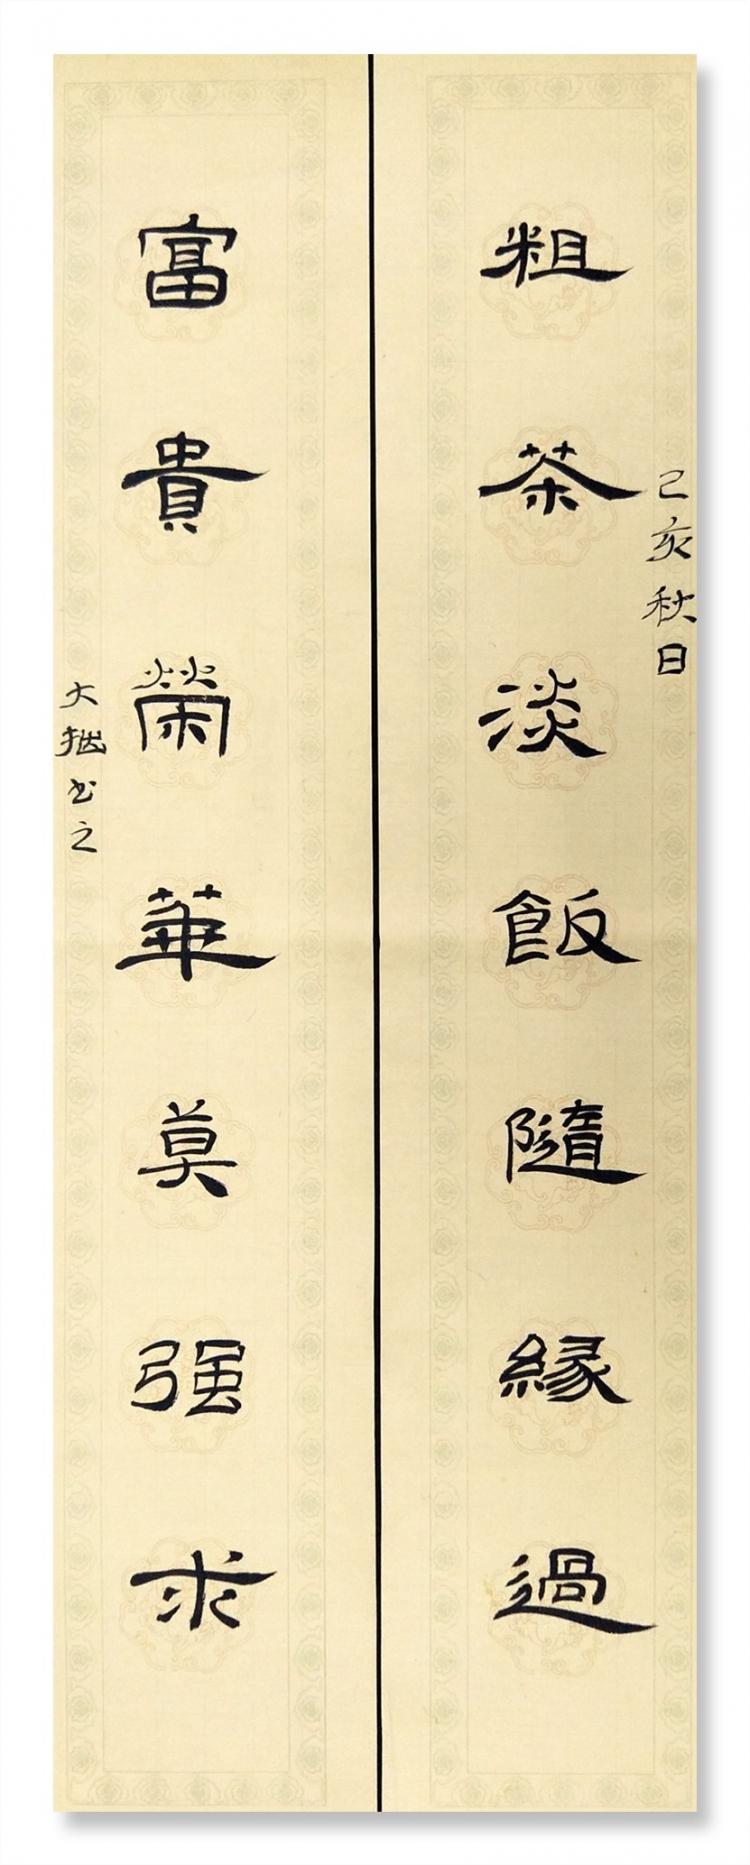 己亥秋日
粗茶淡飯隨緣過
富貴榮華莫强求
大拙书之